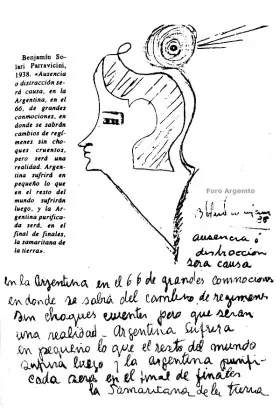 Benjamín So-
lari Parravicini,
1938. «Ausencia
o distracción se-
rá causa, en la
Argentina, en el
66, de grandes
conmociones, en
donde se sabrán
cambios de regí-
menes sin cho-
ques cruentos,
pero será una
realidad. Argen-
tina sufrirá en
pequeño lo que
en el resto del
mundo sufrirán
luego, y la Ar-
gentina purifica-
da será, en el
final de finales,
la samaritana de
la tierra»
Foro Argemto
38
ausencia ó
distraccion
sera causa
en la Argentina en el 66 de grandes conmociones
en donde se sabra del cambio de regimenes
sin choques cruentos pero que seran
una realidad - Argentina sufrira
en pequeño lo que el resto del mundo
sufrira luego y la argentina purifi-
cada sera en el final de finales
la Samaritana de la tierra